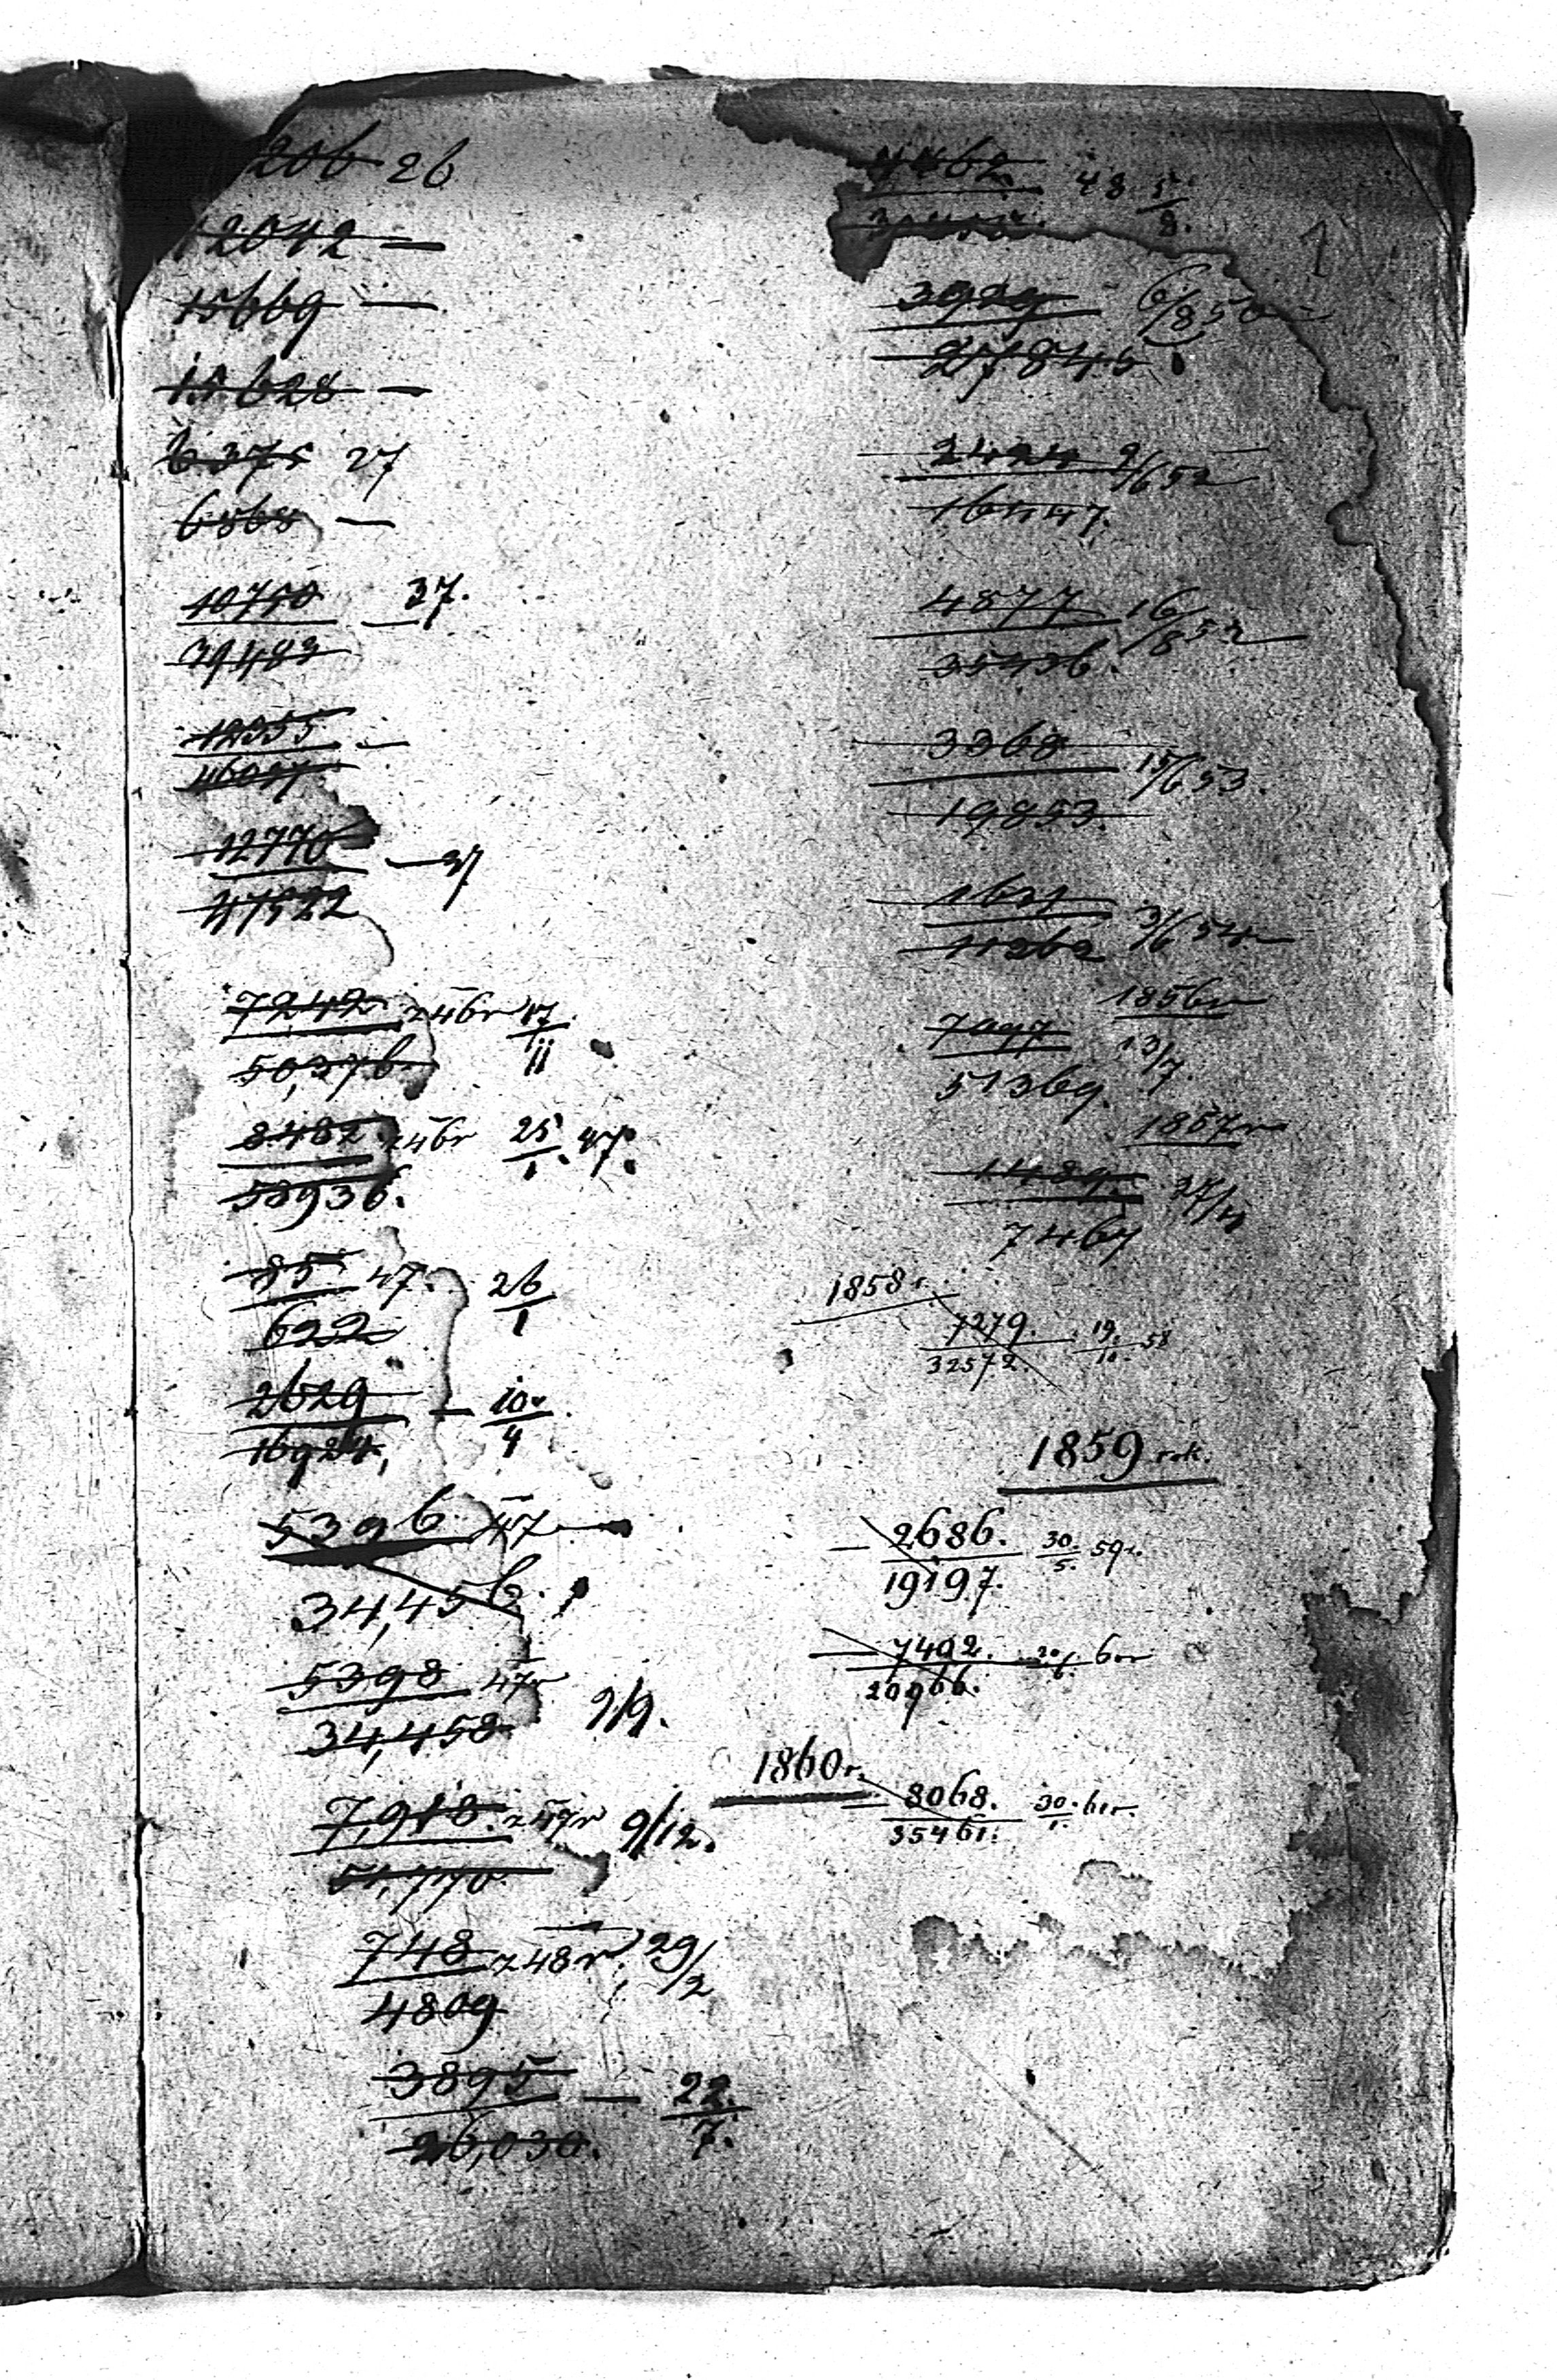 206 26
12042 —
15669 —
15628 —
6375 27
6868 —
10750 — 37.
79483
12355 —
46097
12776 — 37
47522
7242 z 46r 17/11
50,376
8482 z 46r 25/1. 47.
58936.
85 47. 26/1
622
2629 — 10/4
16924,
5396 47
34,456.
5398 47r
34,458 9/9.
7,918. z 47r 9/12.
51,770
748 z 48r 29/2
4809
3895 — 22/7.
26,030.
4462 48. 5/8.
3929 6/8 50
27845
2424 9/6 52
16447.
4877 16/8 52
35436.
3368 15/6 53.
19853.
1631 3/6 54
11262
1856r
7097 13/7.
51369.
1857r
1489. 27/
7467
1858 r.
7279. 19/10. 58
32572.
1859 rok.
— 2686. 30/5. 59r.
19197.
— 7492. 6or
20966.
1860 r.
8068. 30/1. 61r.
35461.